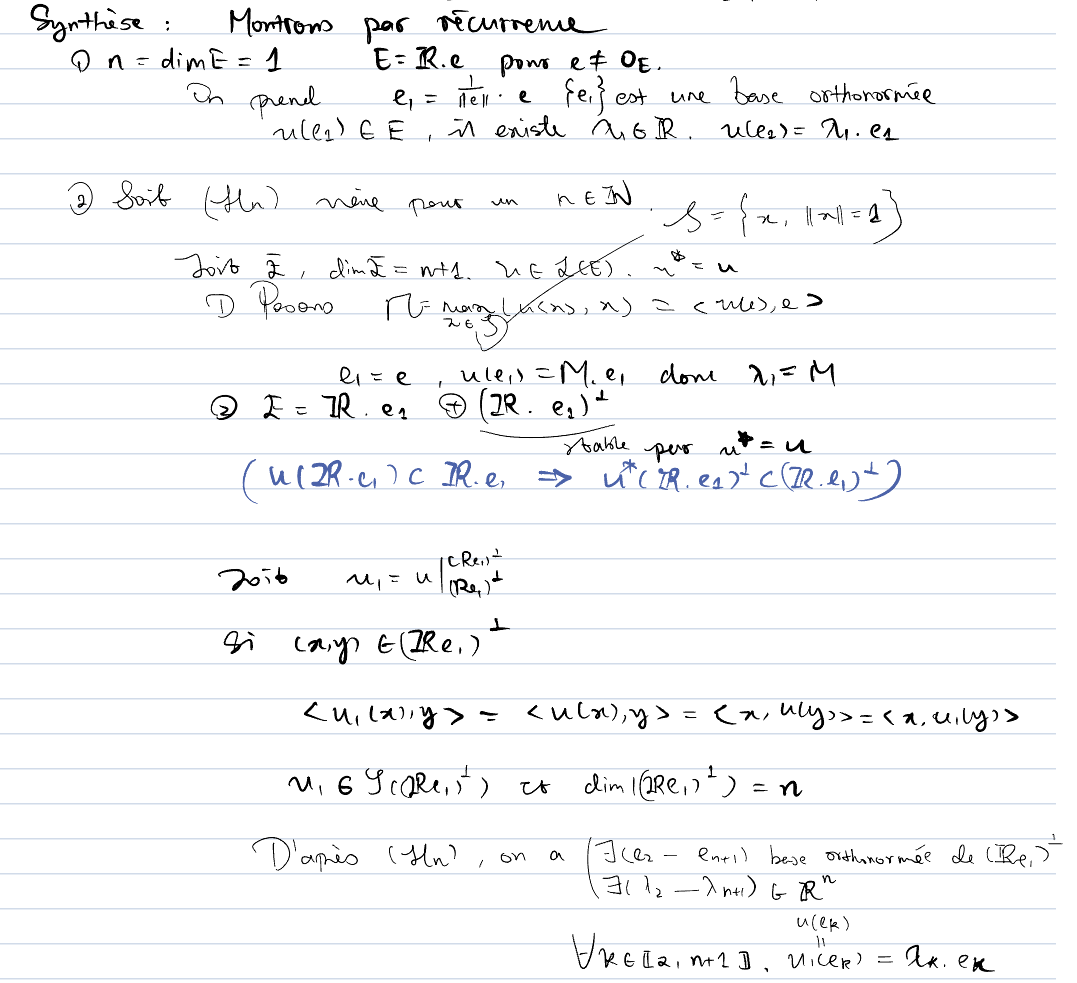 Synthèse : Montrons par récurrence
① n = dim E = 1 E = ℝ.e pour e ≠ 0_E.
On prend e₁ = 1/‖e‖ · e {e₁} est une base orthonormée
u(e₁) ∈ E, il existe λ₁ ∈ ℝ. u(e₁) = λ₁. e₁
② Soit (Hn) vraie pour un n ∈ ℕ. S = {x, ‖x‖ = 1}
Soit E, dim E = n+1. u ∈ L(E). u* = u
① Posons M = max_{x ∈ S} (u(x), x) = <u(e), e>
e₁ = e, u(e₁) = M. e₁ donc λ₁ = M
② E = ℝ. e₁ ⊕ (ℝ. e₁)^⊥
stable par u* = u
(u(ℝ.e₁) ⊂ ℝ.e₁ ⇒ u*(ℝ.e₁)^⊥ ⊂ (ℝ.e₁)^⊥)
Soit u₁ = u|_{(ℝe₁)^⊥}^{(ℝe₁)^⊥}
Si (x,y) ∈ (ℝe₁)^⊥
<u₁(x), y> = <u(x), y> = <x, u(y)> = <x, u₁(y)>
u₁ ∈ S((ℝe₁)^⊥) et dim((ℝe₁)^⊥) = n
D'après (Hn), on a ∃(e₂ — e_{n+1}) base orthonormée de (ℝe₁)^⊥
∃(λ₂ — λ_{n+1}) ∈ ℝⁿ
u(e_k)
∀k ∈ ⟦2, n+1⟧, u₁(e_k) = λ_k. e_k